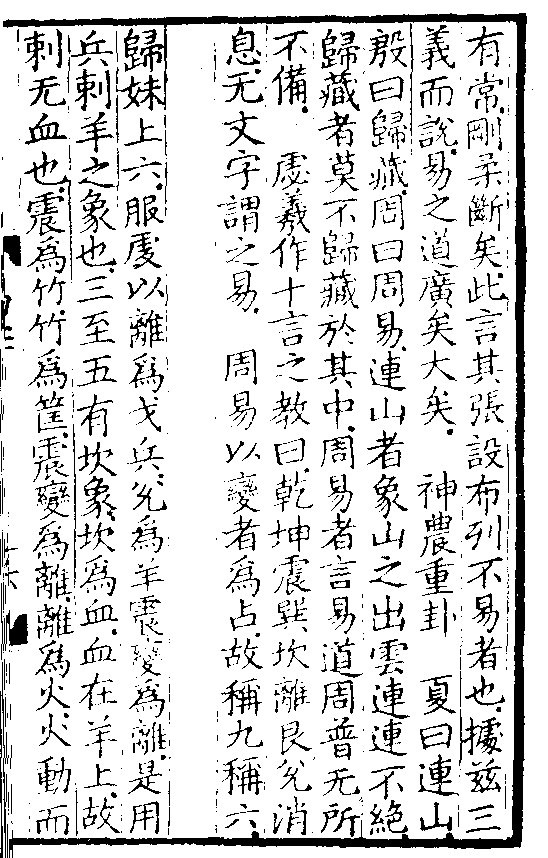 有常剛柔斷矣此言其張設布列不易者也據茲三
義而說易之道廣矣大矣　神農重卦　夏曰連山
殷曰歸藏周曰周易連山者象山之出雲連連不絕
歸藏者莫不歸藏於其中周易者言易道周普无所
不備　虙羲作十言之教曰乾坤震巽坎離艮兌消
息无文字謂之易　周易以變者爲占故稱九稱六
歸妹上六服虔以離爲戈兵兌爲羊震變爲離是用
兵刺羊之象也三至五有坎象坎爲血血在羊上故
刺无血也震爲竹竹爲筐震變爲離離爲火火動而